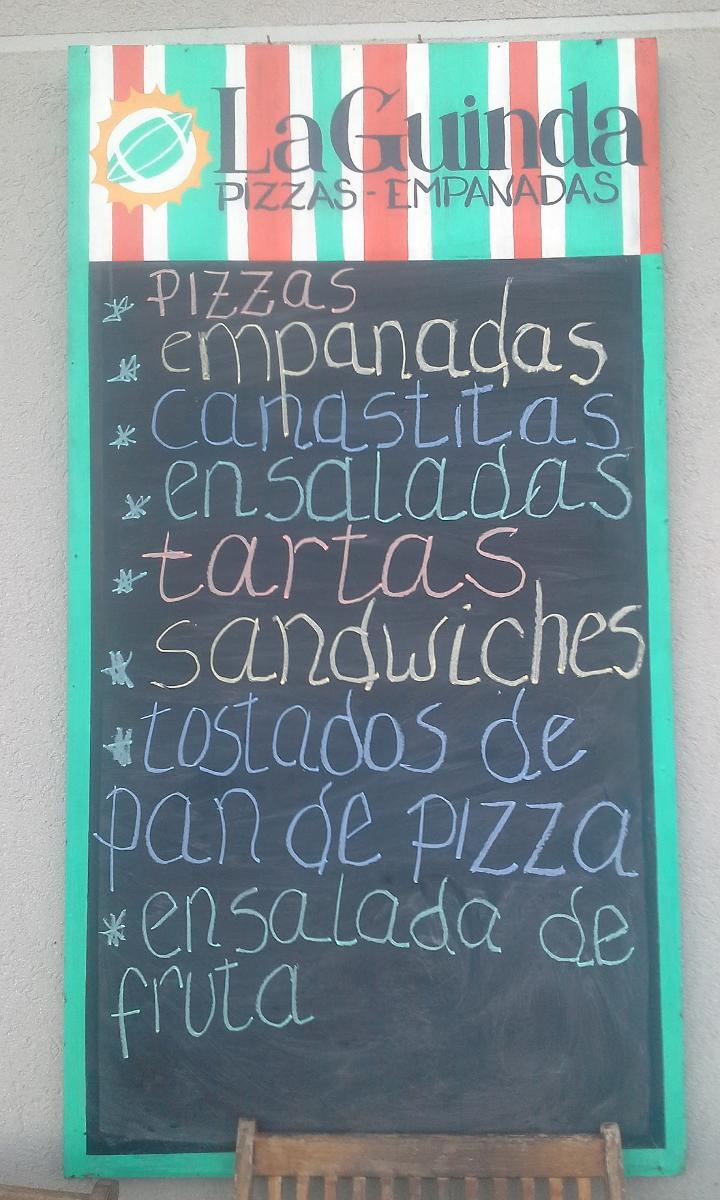 LaGuinda
PIZZAS - EMPANADAS
* PIZZAS
* empanadas
* canastitas
* ensaladas
* tartas
* sandwiches
* tostados de
pan de pizza
* ensalada de
fruta